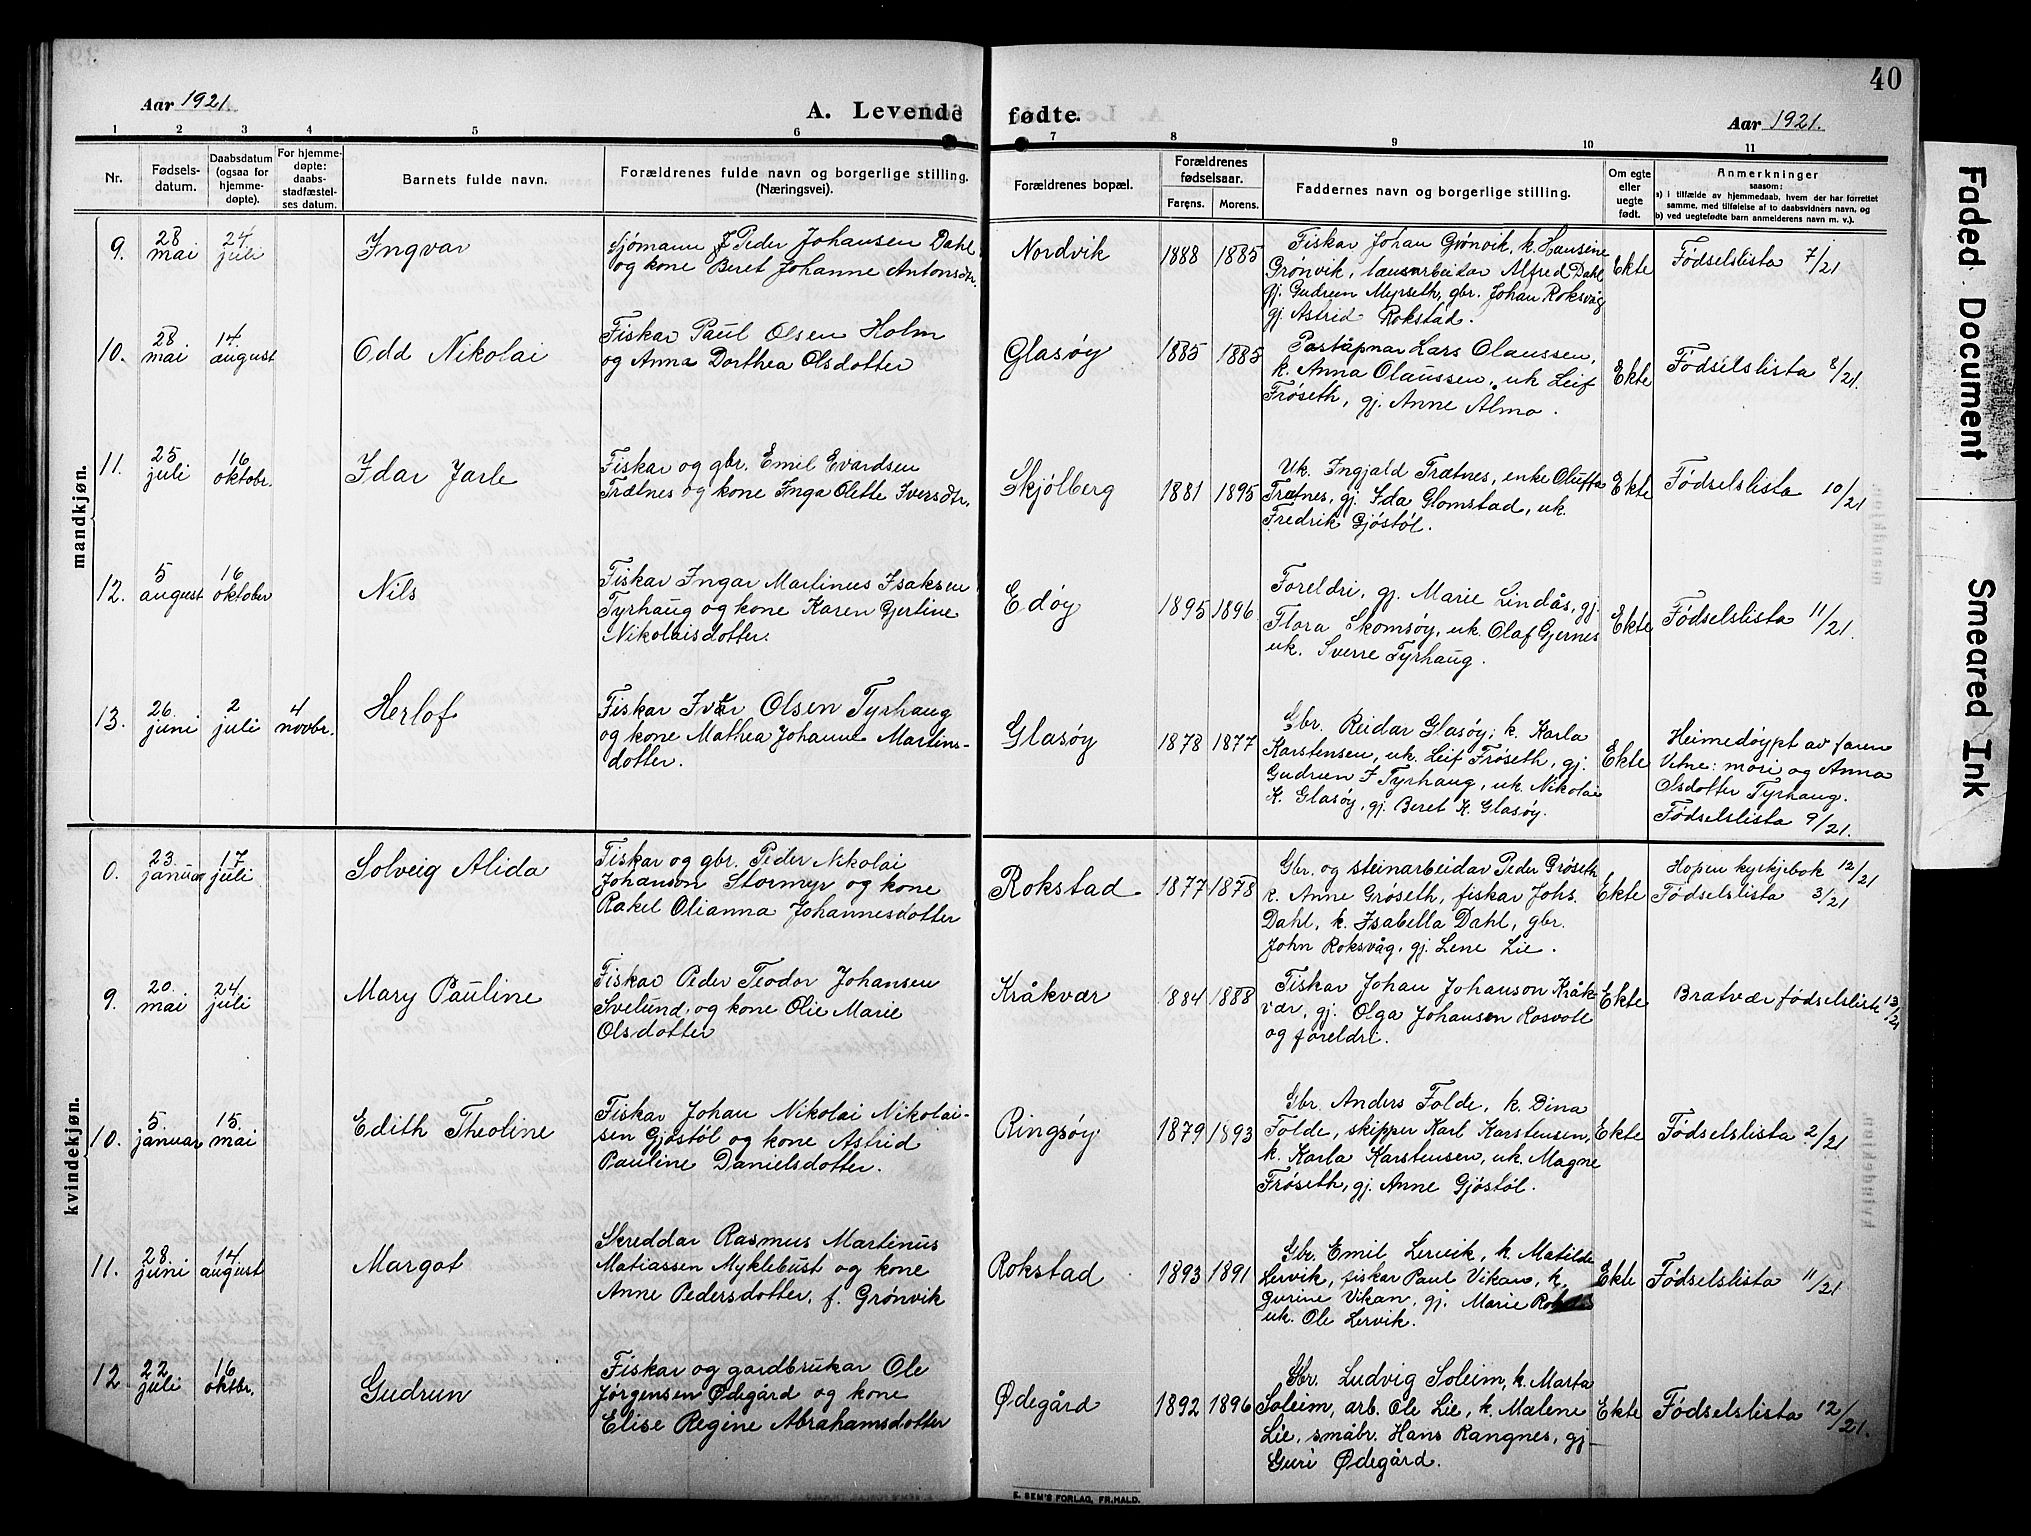 40
Aar 1921.
A. Levende fødte.
Aar 1921.
1 2 3 4 5 6 7 8 9 10 11
Nr.
Fødsels-
datum.
Daabsdatum
(ogsaa for
hjemme-
døpte).
For hjemme-
døpte:
daabs-
stadfæstel-
ses datum.
Barnets fulde navn.
Forældrenes fulde navn og borgerlige stilling.
(Næringsvei).
Forældrenes bopæl.
Forældrenes
fødselsaar.
Farens. Morens.
Faddernes navn og borgerlige stilling.
Om egte
eller
uegte
født.
Anmerkninger
saasom:
a) i tilfælde av hjemmedaab, hvem der har forrettet
samme, med tilføielse af to daabsvidners navn, og
b) ved uegtefødte barn anmelderens navn m. v.).
mandkjøn.
9.
28
mai
24
juli
Ingvar
Sjómann J Peder Johansen Dahl
og kone Beret Johanne Antonsdtr.
Nordvik
1888 1885
Fiskar Johan Grönvik, k. Hansine
Grönvik, lausarbeidar Alfred Dahl
gj. Gudrun Myrseth, gbr. Johan Roksvåg
gj. Astrid Rokstad.
Ekte
Fødselslista 7/21
10.
28
mai
14
august
Odd Nikolai
Fiskar Paul Olsen Holm
og Anna Dorthea Olsdotter
Glasøy
1885 1885
Poståpnar Lars Olaussen,
k. Anna Olaussen, uk Leif
Frøseth, gj. Anne Almo.
Ekte
Fødselslista 8/21.
11.
25
juli
16
oktobr.
Idar Jarle
Fiskar og gbr. Emil Evardsen
Trætnes og kone Inga Olette Iversdtr.
Skjölberg
1881 1895
Uk. Ingjald Trætnes, enke Oluffa
Trætnes, gj. Ida Glomstad, uk.
Fredrik Gjóstól.
Ekte
Fødselslista 10/21
12.
5
august
16
oktober
Nils
Fiskar Ingar Martinus Isaksen
Tyrhaug og kone Karen Gjertine
Nikolaisdotter.
Edöy
1895 1896
Foreldri, gj. Marie Lindås, gj.
Flora Skomsøy, uk. Olaf Gjernes
uk. Sverre Tyrhaug.
Ekte
Fødselslista 11/21.
13.
26
juni
2
juli
4
novbr.
Herlof
Fiskar Ivar Olsen Tyrhaug
og kone Mathea Johanne Martins-
dotter.
Glasøy
1878 1877
Gbr. Reidar Glasøy, k. Karla
Karstensen, uk. Leif Frøseth, gj.
Gudrun J Tyrhaug, uk. Nikolai
K. Glasøy, gj. Beret K. Glasøy.
Ekte
Heimedøypt av faren
Vitne: mori og Anna
Olsdotter Tyrhaug.
Fødselslista 9/21.
kvindekjøn.
0.
23
januar
17
juli
Solveig Alida
Fiskar og gbr. Peder Nikolai
Johanson Stormyr og kone
Rakel Olianna Johannesdotter
Rokstad
1877 1878
Gbr. og steinarbeidar Peder Grøseth
k. Anne Grøseth, fiskar Johs.
Dahl, k. Isabella Dahl, gbr.
John Roksvåg, gj. Lene Lie.
Ekte
Hopen kyrkjebok 12/21
Fødselslista 3/21
9.
20
mai
24
juli
Mary Pauline
Fiskar Peder Teodor Johansen
Svelund, og kone Olie Marie
Olsdotter
Kråkvær
1884 1888
Fiskar Johan Johanson Kråk-
vær, gj. Olga Johansen Rosvoll
og foreldri.
Ekte
Bratvær fødselsliste 13/21
10.
5
januar
15.
mai
Edith Theoline
Fiskar Johan Nikolai Nikolai-
sen Gjóstól og kone Astrid
Pauline Danielsdotter.
Ringsøy
1879 1893
Gbr. Anders Folde, k. Dina
Folde, skipper Karl Karstensen,
k. Karla Karstensen, uk. Magne
Frøseth, gj. Anne Gjóstól.
Ekte
Fødselslista 2/21
11.
28
juni
14
august
Margot
Skreddar Rasmus Martinus
Matiassen Myklebust og kone
Anne Pedersdotter, f. Grønvik
Rokstad
1893 1891
Gbr. Emil Lervik, k. Matilde
Lervik, fiskar Paul Vikan, k.
Gurine Vikan, gj. Marie
uk. Ole Lervik.
Ekte
Fødselslista 11/21
12
22
juli
16
oktbr.
Gudrun
Fiskar og gardbrukar Ole
Jørgensen Ødegård og kone
Elise Regine Abrahamsdotter
Ødegård
1892 1896
Gbr. Ludvig Soleim, k. Marta
Soleim, arb. Ole Lie, k. Malene
Lie, småbr. Hans Rangnes, gj.
Guri Ødegård.
Ekte
Fødselslista 12/21.
E. SEM'S FORLAG, FR.HALD.
Faded Document
Smeared Ink